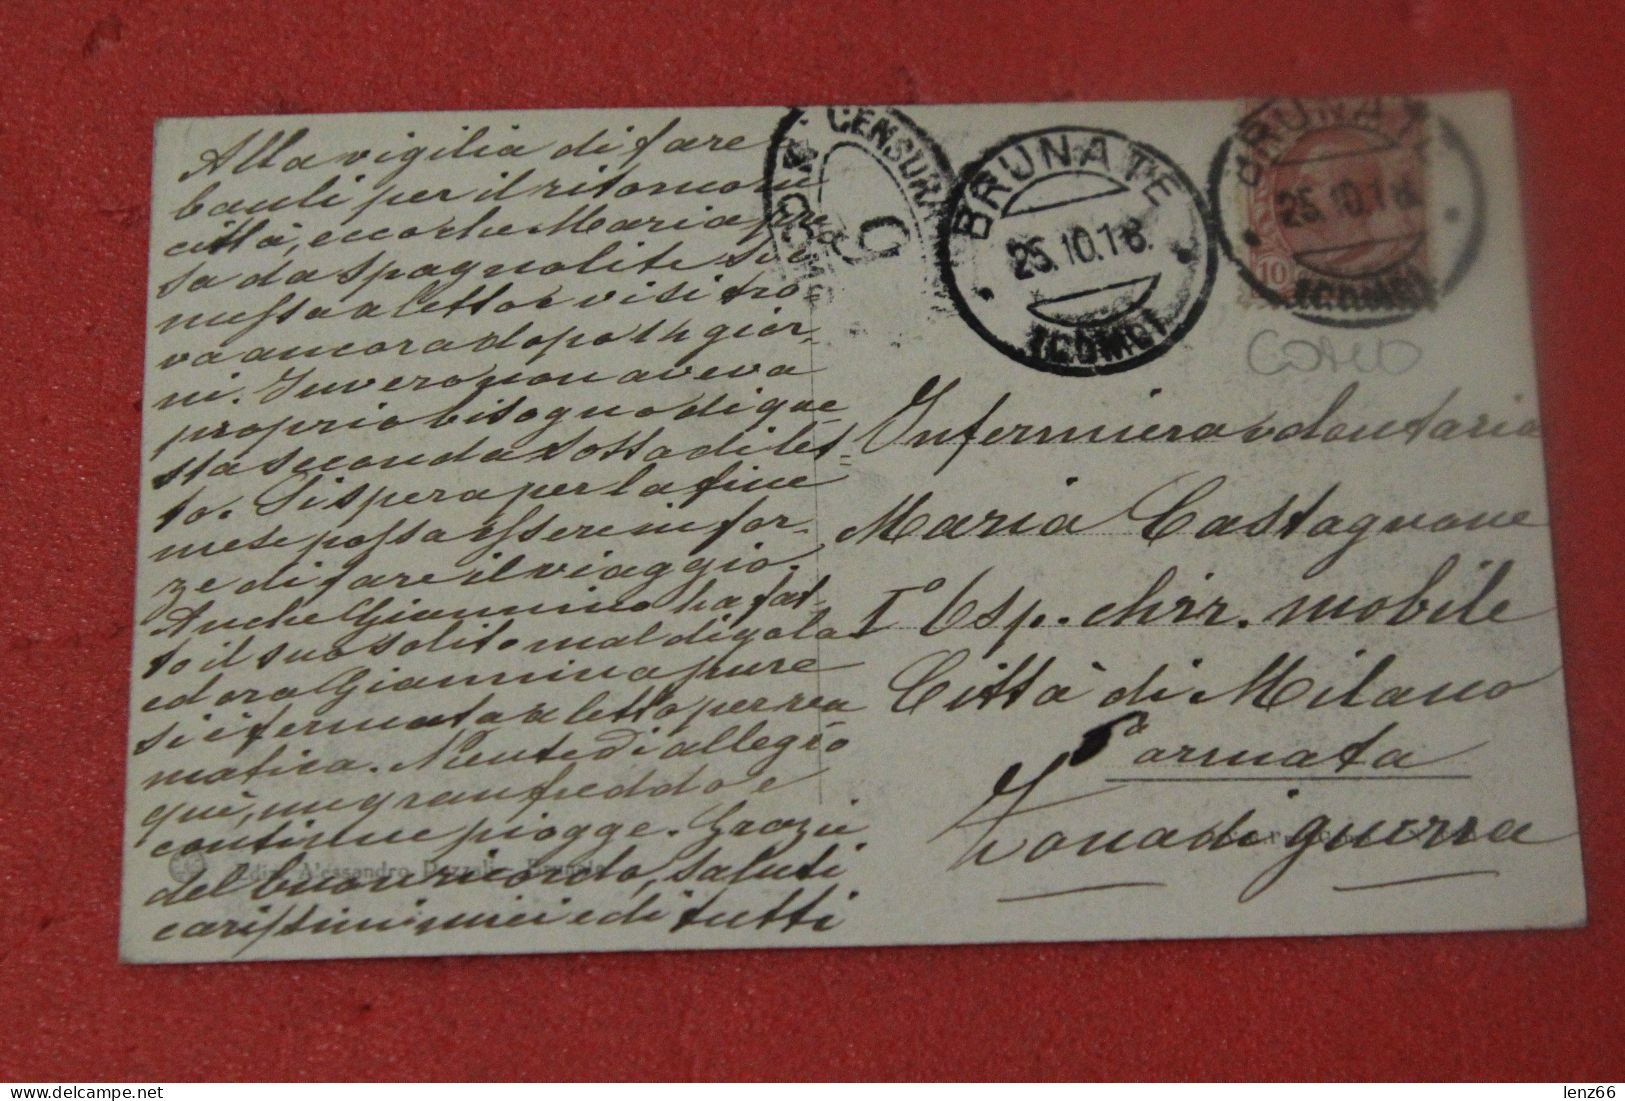 Alla vigilia di fare
bauli per il ritorno in
città, ecco che Maria pre
sa da spagnolite si è
messa a letto e vi si tro-
va ancora dopo 14 gior-
ni. Invero non aveva
proprio bisogno di que-
sta seconda sossa di let=
to. Si spera per la fine
mese possa essere in for-
ze di fare il viaggio.
Anche Giannino ha fat-
to il suo solito mal di gola
ed ora Giannina pure
si è fermata a letto per reu
matica. Niente di allegro
qui, un gran freddo e
continue piogge. Grazie
del buon ricordo, saluti
carissimi miei e di tutti
Ediz. Alessandro - Brunate
CENSURA
COMO
9
BRUNATE
25.10.18.
(COMO)
BRUNATE
25.10.18.
(COMO)
10
COMO
Infermiera volontaria
Maria Castagnone
I° Osp. chir. mobile
Città di Milano
armata
Zona di guerra
lenz66